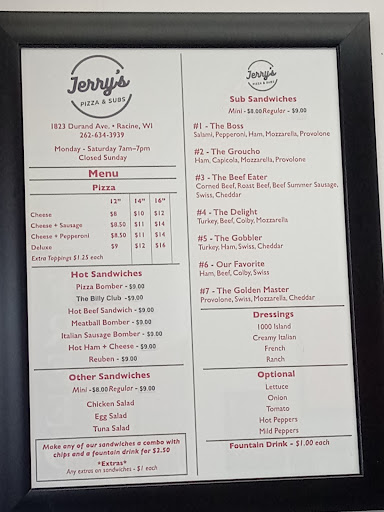 Jerry's
PIZZA & SUBS
1823 Durand Ave. • Racine, WI
262-634-3939
Monday - Saturday 7am-7pm
Closed Sunday
Menu
Pizza
12" 14" 16"
Cheese $8 $10 $12
Cheese + Sausage $8.50 $11 $14
Cheese + Pepperoni $8.50 $11 $14
Deluxe $9 $12 $16
Extra Toppings $1.25 each
Hot Sandwiches
Pizza Bomber - $9.00
The Billy Club - $9.00
Hot Beef Sandwich - $9.00
Meatball Bomber - $9.00
Italian Sausage Bomber - $9.00
Hot Ham + Cheese - $9.00
Reuben - $9.00
Other Sandwiches
Mini - $8.00 Regular - $9.00
Chicken Salad
Egg Salad
Tuna Salad
Make any of our sandwiches a combo with
chips and a fountain drink for $2.50
*Extras*
Any extras on sandwiches - $1 each
Jerry's
PIZZA & SUBS
Sub Sandwiches
Mini - $8.00 Regular - $9.00
#1 - The Boss
Salami, Pepperoni, Ham, Mozzarella, Provolone
#2 - The Groucho
Ham, Capicola, Mozzarella, Provolone
#3 - The Beef Eater
Corned Beef, Roast Beef, Beef Summer Sausage,
Swiss, Cheddar
#4 - The Delight
Turkey, Beef, Colby, Mozzarella
#5 - The Gobbler
Turkey, Ham, Swiss, Cheddar
#6 - Our Favorite
Ham, Beef, Colby, Swiss
#7 - The Golden Master
Provolone, Swiss, Mozzarella, Cheddar
Dressings
1000 Island
Creamy Italian
French
Ranch
Optional
Lettuce
Onion
Tomato
Hot Peppers
Mild Peppers
Fountain Drink - $1.00 each